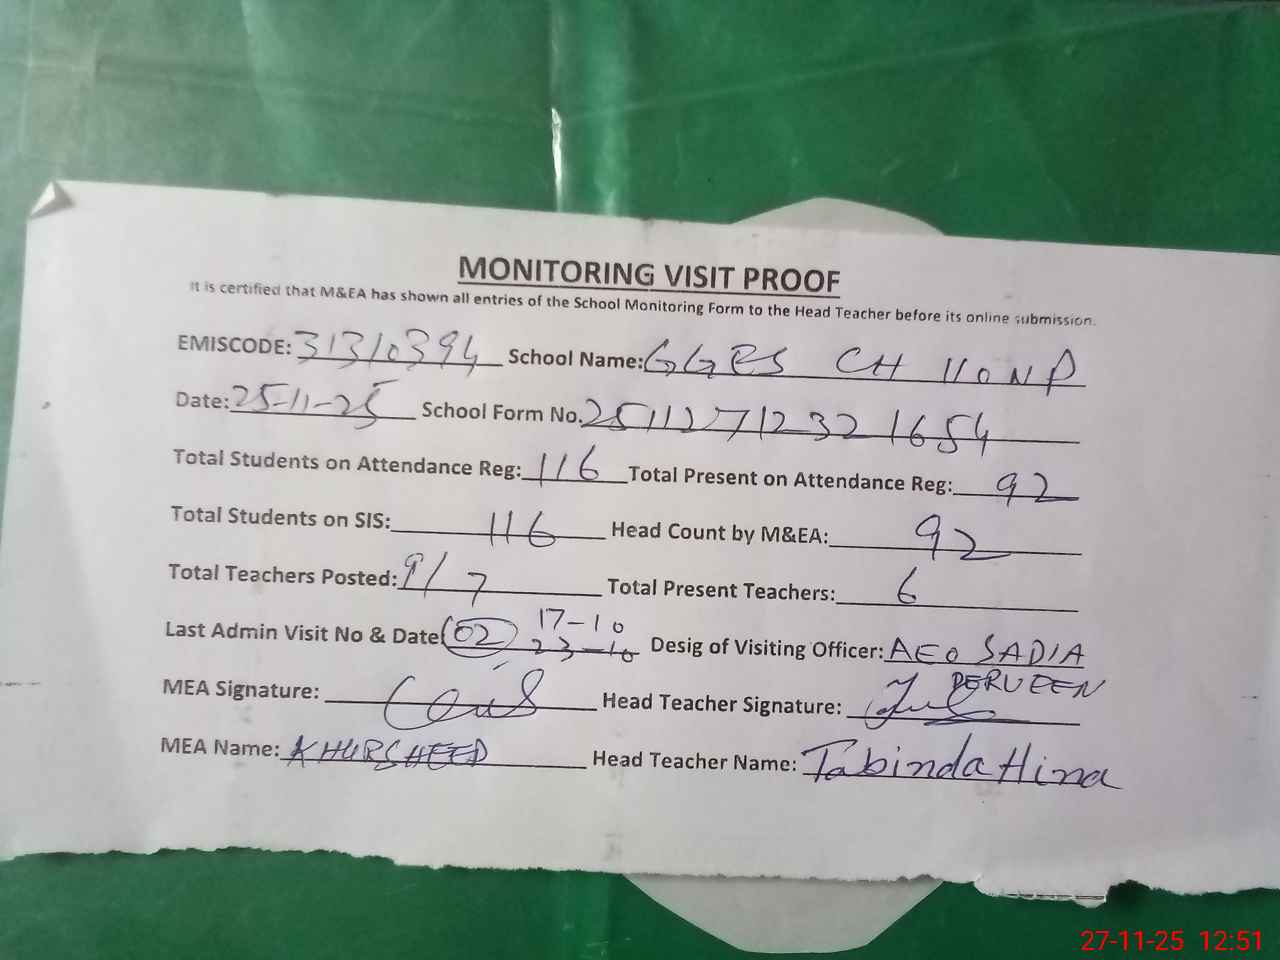 MONITORING VISIT PROOF
It is certified that M&EA has shown all entries of the School Monitoring Form to the Head Teacher before its online submission.
EMISCODE: 31310394 School Name: GGES CH 110NP
Date: 25-11-25 School Form No. 25112712321654
Total Students on Attendance Reg: 116 Total Present on Attendance Reg: 92
Total Students on SIS: 116 Head Count by M&EA: 92
Total Teachers Posted: 9/7 Total Present Teachers: 6
Last Admin Visit No & Date (02) 17-10 23-10 Desig of Visiting Officer: AEO SADIA PERVEEN
MEA Signature: Head Teacher Signature:
MEA Name: KHURSHEED Head Teacher Name: Tabinda Hina
27-11-25 12:51